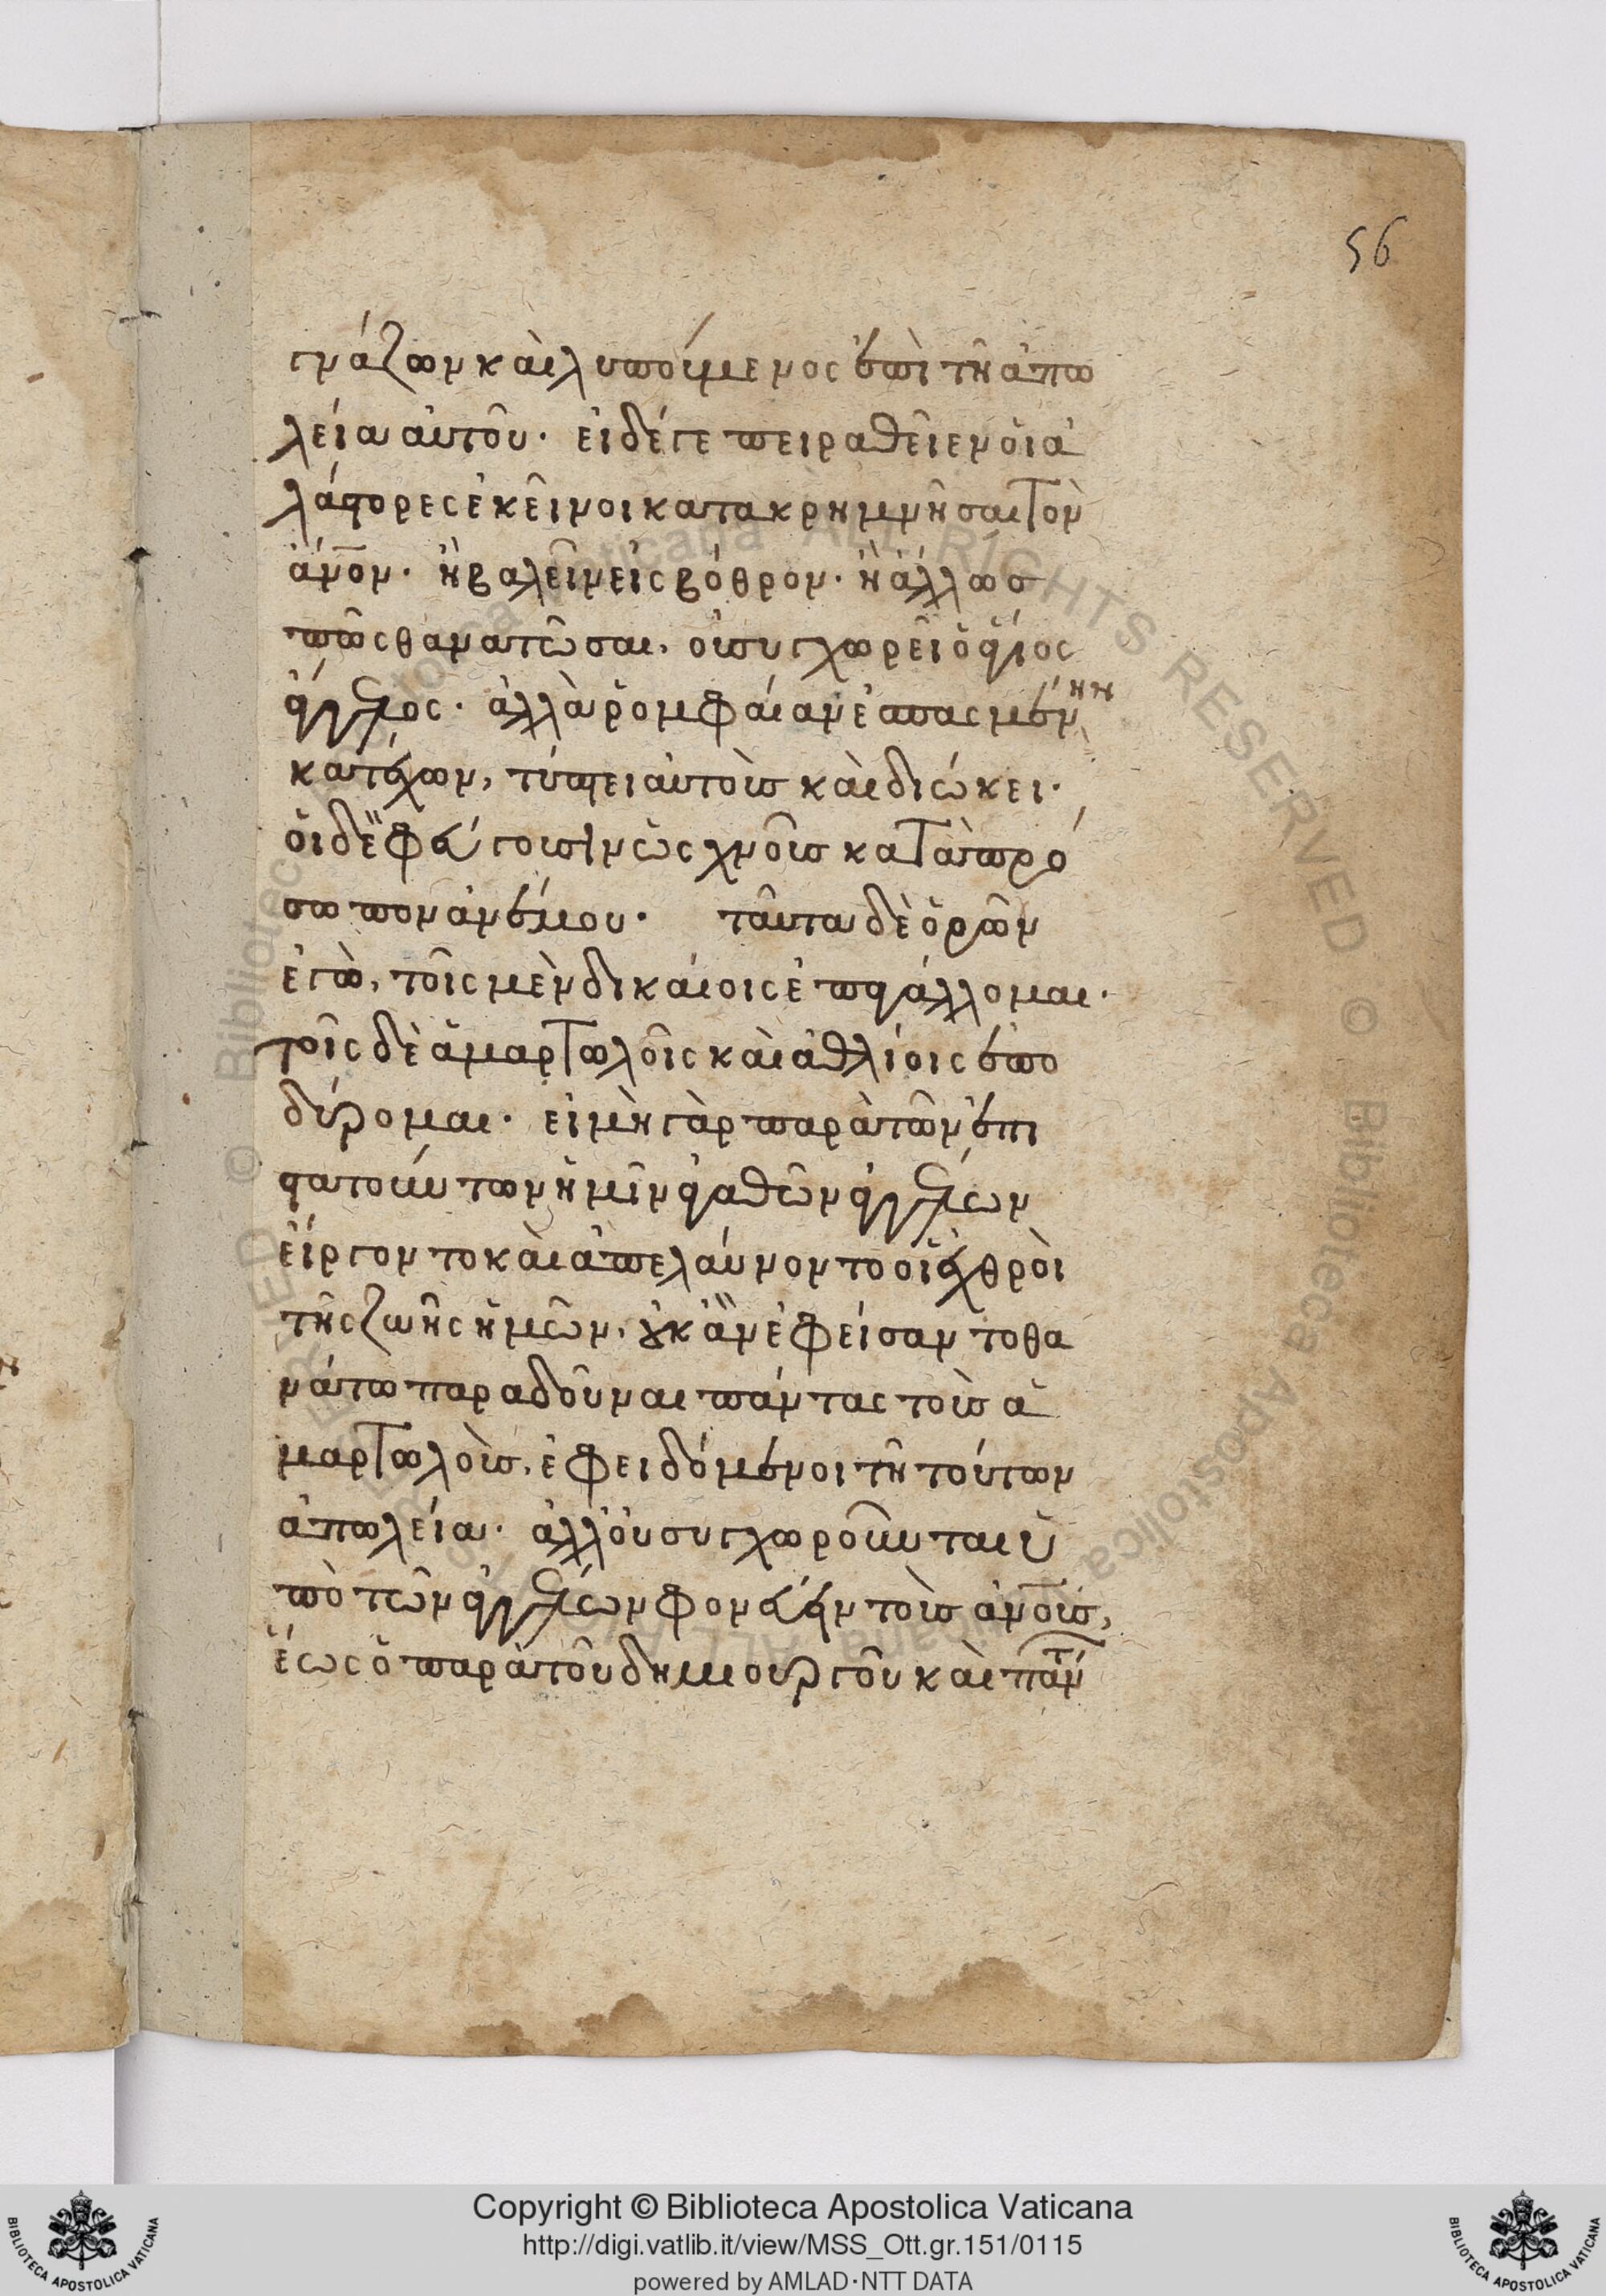 56
γνάζων καὶ λυπούμενος ἐπὶ τῆ ἀπω
λεία αὐτοῦ· εἰ δέ γε πειραθεῖεν οἱ ἀ
λάστορες ἐκεῖνοι κατακρημνῆσαι τὸν
ἄνον· ἢ βαλεῖν εἰς βόθρον· ἢ ἄλλωσ
πῶς θανατῶσαι, οὐ συγχωρεῖ ὁ ἅγιος
ἄγγελος· ἀλλὰ ῥομφαίαν ἐσπασμένην
κατέχων, τύπτει αὐτοὺσ καὶ διώκει·
οἱ δὲ φεύγουσιν ὡς χνοῦσ κατὰ πρό
σωπον ἀνέμου· ταῦτα δὲ ὁρῶν
ἐγὼ, τοῖς μὲν δικαίοις ἐπψάλλομαι·
τοῖς δὲ ἁμαρτωλοῖς καὶ ἀθλίοις ἐπο
δύρομαι· εἰ μὴ γὰρ παρὰ τῶν ἐπι
στατούντων ἡμῖν ἀγαθῶν ἀγγέλων
εἴργοντο καὶ ἀπελαύνοντο οἱ ἐχθροὶ
τῆς ζωῆς ἡμῶν, οὐκ ἂν ἐφείσαντο θα
νάτω παραδοῦναι πάντας τοὺσ ἁ
μαρτωλοὺσ, ἐφειδόμενοι τῆ τούτων
ἀπωλεία· ἀλλ' οὐ συγχωροῦνται ὑ
πὸ τῶν ἀγγέλων φονεύειν τοὺσ ἀνοὺσ,
ἕως ὁ παρὰ τοῦ δημιουργοῦ καὶ πάντ
Copyright © Biblioteca Apostolica Vaticana
http://digi.vatlib.it/view/MSS_Ott.gr.151/0115
powered by AMLAD·NTT DATA
BIBLIOTECA APOSTOLICA VATICANA
BIBLIOTECA APOSTOLICA VATICANA